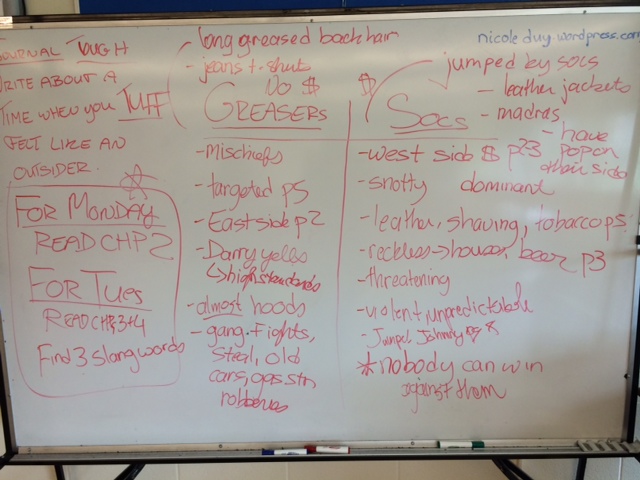 JOURNAL TOUGH
WRITE ABOUT A
TIME WHEN YOU TUFF
FELT LIKE AN
OUTSIDER.
FOR MONDAY
READ CHP 2
FOR TUES
READ CHP 3+4
Find 3 slang words
- long greased back hair
- jeans t-shirts
No $
GREASERS
- mischiefs
- targeted p5
- East side p2
- Darry yells
↳ high standards
- almost hoods
- gang fights,
steal, old
cars, gas stn
robberies
nicoleduy.wordpress.com
jumped by socs
- leather jackets
- madras
- have
pop on
their side
$
SOCS
- west side $ p23
- snotty dominant
- leather, shaving, tobacco p5
- reckless → houses, beer p3
- threatening
- violent, unpredictable
- Jumped Johnny
* nobody can win
against them